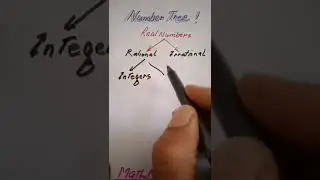 Number Tree !
Real Numbers
Rational Irrational
Integers
Integers